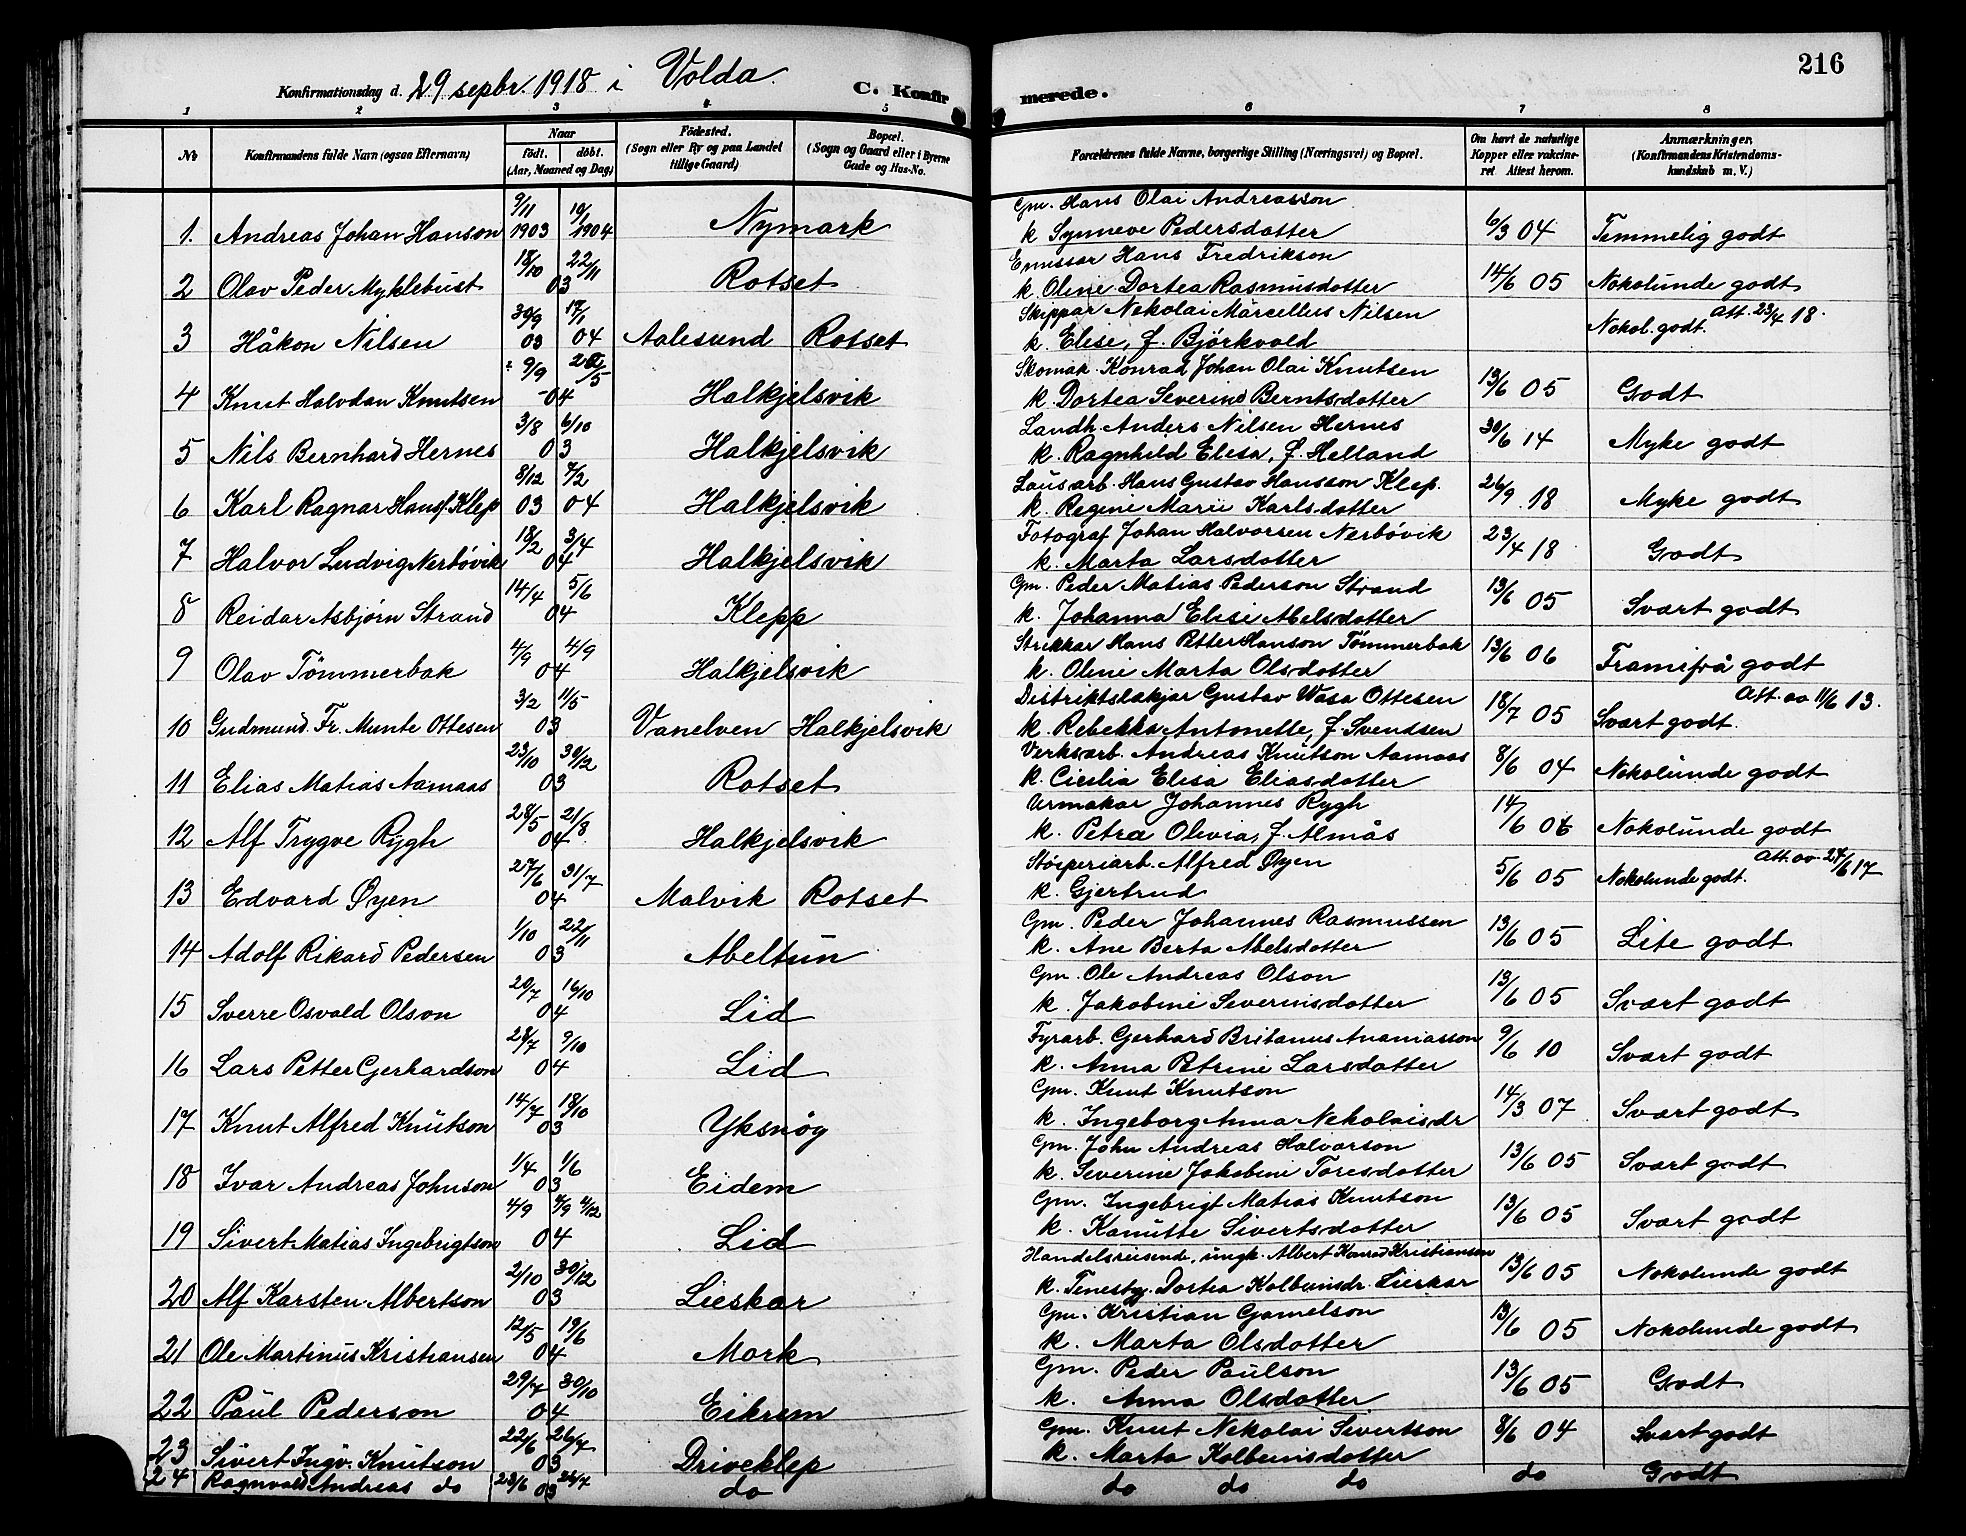 216
Konfirmationsdag d. 29 sepbr. 1918 i Volda.
C. Konfirmerede.
1 2 3 4 5 6 7 8
№ Konfirmandens fulde Navn (ogsaa Efternavn) Naar födt. döbt. (Aar, Maaned og Dag) Födested. (Sogn eller By og paa Landet tillige Gaard) Bopæl. (Sogn og Gaard eller i Byerne Gade og Hus-No. Forældrenes fulde Navne, borgerlige Stilling (Næringsvei) og Bopæl. Om havt de naturlige Kopper eller vakcineret Attest herom. Anmærkninger, (Konfirmandens Kristendomskundskab m. V.)
1. Andreas Johan Hanson 9/11 1903 10/1 1904 Nymark Gm. Hans Olai Andreasson
k. Synneve Pedersdatter 6/3 04 Temmelig godt
2 Olav Peder Myklebust 18/10 22/11 03 Rotset Emissær Hans Fredrikson
k. Oline Dortea Rasmusdotter 14/6 05 Nokolunde godt
3 Håkon Nilsen 30/9 03 17/1 04 Aalesund Rotset Skippar Nekolai Marcellus Nilsen
k. Elise, f. Björkvold Nokol. godt. Att. 23/4 18.
4 Knut Halvdan Knutsen 9/9 26/5 04 Halkjelsvik Skomak. Konrad Johan Olai Knutsen
k. Dortea Severine Berntsdotter 13/6 05 Godt
5 Nils Bernhard Hernes 3/8 6/10 03 Halkjelsvik Landh. Anders Nilsen Hernes
k. Ragnhild Elisa, f. Helland 30/6 14 Myke godt
6 Karl Ragnar Hansf. Klep 8/12 03 7/2 04 Halkjelsvik Lausarb. Hans Gustav Hansson Klep.
k. Regine Marie Karlsdotter 26/9 18 Myke godt
7 Halvor Ludvig Nerbövik 18/2 3/4 04 Halkjelsvik Fotograf Johan Halvorsen Nerbövik
k. Marta Larsdotter 23/4 18 Godt
8 Reidar Asbjørn Strand 14/4 5/6 04 Klepp Gm. Peder Matias Pederson Strand
k. Johanna Elise Abelsdotter 13/6 05 Svært godt
9 Olav Tömmerbak 4/9 4/9 04 Halkjelsvik Strikkar Hans Petter Hanson Tömmerbak
k. Oline Marta Olsdotter 13/6 06 Framifrå godt
10 Gudmund Fr. Munte Ottesen 3/2 11/5 03 Vanelven Halkjelsvik Distriktslækjar Gustav Wasa Ottesen
k. Rebekka Antonette, f. Svendsen 18/7 05 Svært godt. Att. av 11/6 13.
11 Elias Matias Aamaas 23/10 30/12 03 Rotset Verksarb. Andreas Knutson Aamaas
k. Cicilia Elisa Eliasdotter 8/6 04 Nokolunde godt
12 Alf Trygve Rygh 28/5 21/8 04 Halkjelsvik Urmakar Johannes Rygh
k. Petra Olivia, f. Almås 14/6 06 Nokolunde godt
13 Edvard Øyen 27/6 31/7 04 Malvik Rotset Støiperiarb. Alfred Øyen
k. Gjertrud 5/6 05 Nokolunde godt. Att. av 27/6 17
14 Adolf Rikard Pedersen 1/10 22/11 03 Abeltun Gm. Peder Johannes Rasmussen
k. Ane Berta Abelsdotter 13/6 05 Lite godt
15 Sverre Osvald Olson 20/7 16/10 04 Lid Gm. Ole Andreas Olson
k. Jakobine Severinsdotter 13/6 05 Svært godt
16 Lars Petter Gerhardson 28/7 9/10 04 Lid Fyrarb. Gerhard Britanus Ananiasson
k. Anna Petrine Larsdotter 9/6 10 Svært godt
17 Knut Alfred Knutson 14/7 18/10 03 Yksnöy Gm. Knut Knutson
k. Ingeborg Anna Nekolaisdr 14/3 07 Svært godt
18 Ivar Andreas Johnson 1/4 1/6 03 Eidem Gm. John Andreas Halvarson
k. Severine Jakobine Toresdotter 13/6 05 Svært godt
19 Sivert Matias Ingebrigtson 4/9 4/9 4/12 04 Lid Gm. Ingebrigt Matias Knutson
k. Kanutte Sivertsdotter 13/6 05 Svært godt
20 Alf Karsten Albertson 2/10 30/12 03 Lieskar Handelsreisende, ungk. Albert Konrad Kristiansen
k. Tenestg. Dortea Kolbeinsdr. Lieskar 13/6 05 Nokolunde godt
21 Ole Martinus Kristiansen 12/5 19/6 04 Mork Gm. Kristian Gamelson
k. Marta Olsdotter 13/6 05 Nokolunde godt
22 Paul Pederson 29/7 30/10 04 Eikrem Gm. Peder Paulson
k. Anna Olsdotter 13/6 05 Godt
23 Sivert Ingv. Knutson 22/6 26/7 03 Driveklep Gm. Knut Nekolai Sivertson
k. Marta Kolbeinsdotter 8/6 04 Svært godt
24 Ragnvald Andreas do 23/6 26/7 03 do do do do do Godt